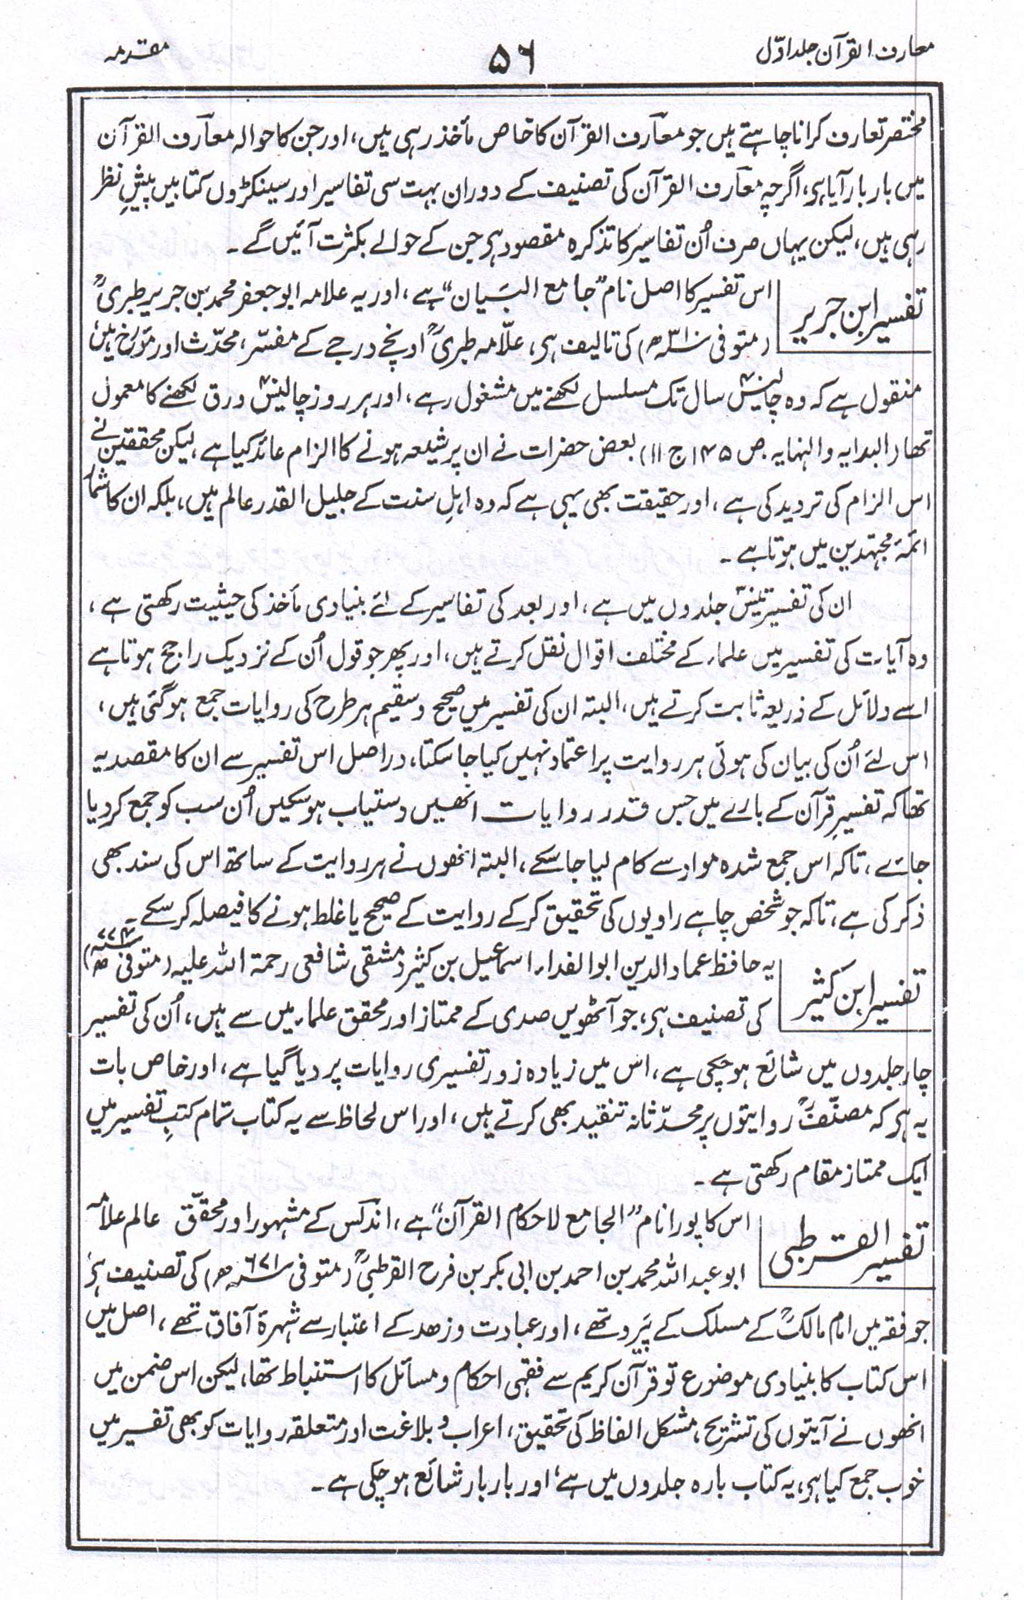 معارف القرآن جلد اوّل
۵۶
مقدمہ
مختصر تعارف کرانا چاہتے ہیں جو معارف القرآن کا خاص مأخذ رہی ہیں، اور جن کا حوالہ معارف القرآن
میں بار بار آیا ہی، اگرچہ معارف القرآن کی تصنیف کے دوران بہت سی تفاسیر اور سینکڑوں کتابیں پیشِ نظر
رہی ہیں، لیکن یہاں صرف اُن تفاسیر کا تذکرہ مقصود ہی جن کے حوالے بکثرت آئیں گے۔
تفسیر ابن جریر
اس تفسیر کا اصل نام "جامع البیان" ہے، اور یہ علامہ ابوجعفر محمد بن جریر طبریؒ
(متوفی ۳۱۰ھ) کی تالیف ہی، علّامہ طبریؒ اونچے درجے کے مفسّر، محدّث اور مؤرخ ہیں
منقول ہے کہ وہ چالیس۴۰ سال تک مسلسل لکھنے میں مشغول رہے، اور ہر روز چالیس۴۰ ورق لکھنے کا معمول
تھا (البدایہ والنہایہ ص ۱۴۵ ج ۱۱) بعض حضرات نے ان پر شیعہ ہونے کا الزام عائد کیا ہے، لیکن محققین نے
اس الزام کی تردید کی ہے، اور حقیقت بھی یہی ہے کہ وہ اہلِ سنت کے جلیل القدر عالم ہیں، بلکہ ان کا شمار
ائمۂ مجتہدین میں ہوتا ہے۔
ان کی تفسیر تیس۳۰ جلدوں میں ہے، اور بعد کی تفاسیر کے لئے بنیادی مأخذ کی حیثیت رکھتی ہے،
وہ آیات کی تفسیر میں علماء کے مختلف اقوال نقل کرتے ہیں، اور پھر جو قول اُن کے نزدیک راجح ہوتا ہے
اسے دلائل کے ذریعہ ثابت کرتے ہیں، البتہ ان کی تفسیر میں صحیح و سقیم ہر طرح کی روایات جمع ہوگئی ہیں،
اس لئے اُن کی بیان کی ہوئی ہر روایت پر اعتماد نہیں کیا جاسکتا، دراصل اس تفسیر سے ان کا مقصد یہ
تھا کہ تفسیر قرآن کے بارے میں جس قدر روایات انھیں دستیاب ہوسکیں اُن سب کو جمع کردیا
جائے، تاکہ اس جمع شدہ مواد سے کام لیا جاسکے، البتہ انھوں نے ہر روایت کے ساتھ اس کی سند بھی
ذکر کی ہے، تاکہ جو شخص چاہے راویوں کی تحقیق کرکے روایت کے صحیح یا غلط ہونے کا فیصلہ کرسکے۔
تفسیر ابن کثیر
یہ حافظ عماد الدین ابوالفداء اسماعیل بن کثیر دمشقی شافعی رحمۃ اللہ علیہ (متوفی ۷۷۴ھ)
کی تصنیف ہی، جو آٹھویں صدی کے ممتاز اور محقق علماء میں سے ہیں، اُن کی تفسیر
چار جلدوں میں شائع ہوچکی ہے، اس میں زیادہ زور تفسیری روایات پر دیا گیا ہے، اور خاص بات
یہ ہی کہ مصنفؒ روایتوں پر محدّثانہ تنقید بھی کرتے ہیں، اور اس لحاظ سے یہ کتاب تمام کتب تفسیر میں
ایک ممتاز مقام رکھتی ہے۔
تفسیر القرطبی
اس کا پورا نام "الجامع لاحکام القرآن" ہے، اندلس کے مشہور اور محقّق عالم علامہ
ابوعبداللہ محمد بن احمد بن ابی بکر بن فرح القرطبیؒ (متوفی ۶۷۱ھ) کی تصنیف ہی
جو فقہ میں امام مالکؒ کے مسلک کے پیرو تھے، اور عبادت و زھد کے اعتبار سے شہرۂ آفاق تھے، اصل میں
اس کتاب کا بنیادی موضوع تو قرآن کریم سے فقہی احکام و مسائل کا استنباط تھا، لیکن اس ضمن میں
انھوں نے آیتوں کی تشریح، مشکل الفاظ کی تحقیق، اعراب و بلاغت اور متعلقہ روایات کو بھی تفسیر میں
خوب جمع کیا ہی، یہ کتاب بارہ جلدوں میں ہے، اور بار بار شائع ہوچکی ہے۔